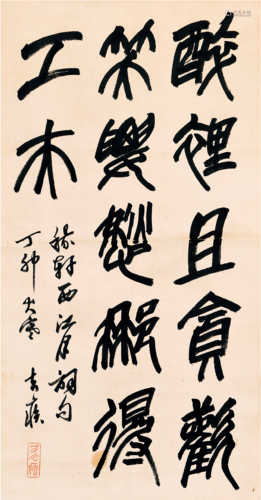 醉裡且貪歡
笑要愁那得
工夫
稼軒西江月詞句
丁卯大寒 去疾